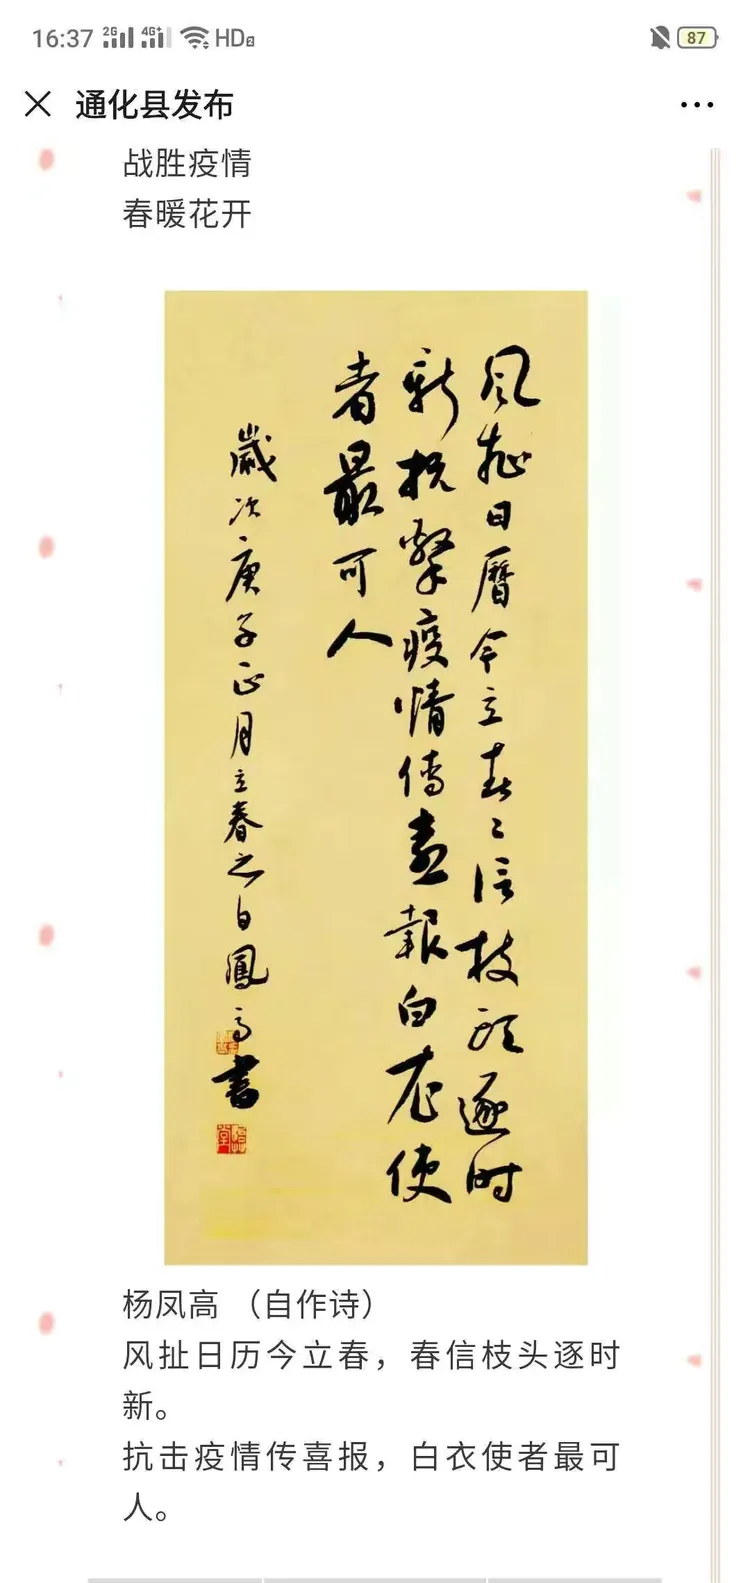 16:37 2G 4G+ HD2 87
通化县发布
战胜疫情
春暖花开
风扯日曆今立春〻信枝头逐时
新抗擊疫情传喜報白衣使
者最可人
歲次庚子正月立春之日鳳高書
杨凤高 （自作诗）
风扯日历今立春，春信枝头逐时
新。
抗击疫情传喜报，白衣使者最可
人。